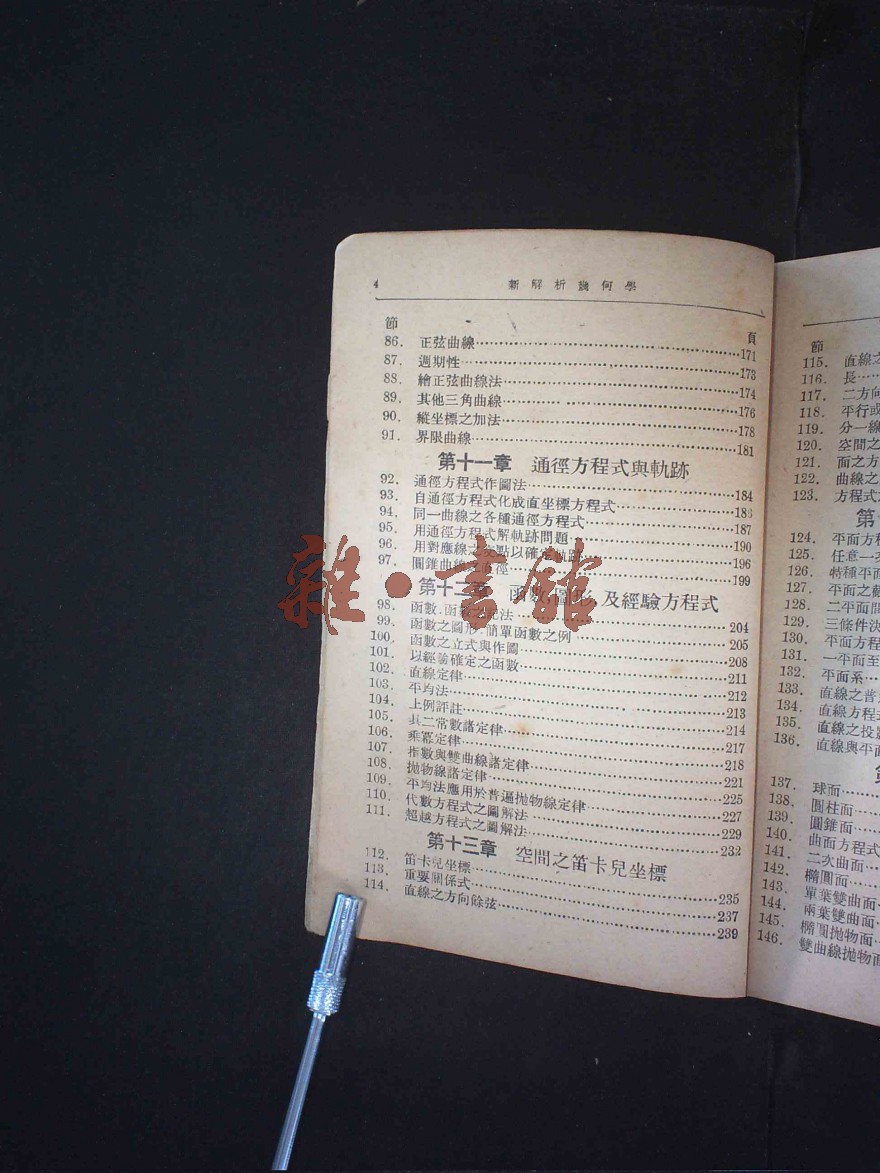 4 新解析幾何學
節 頁
86. 正弦曲線 171
87. 週期性 173
88. 繪正弦曲線法 174
89. 其他三角曲線 176
90. 縱坐標之加法 178
91. 界限曲線 181
第十一章 通徑方程式與軌跡
92. 通徑方程式作圖法 184
93. 自通徑方程式化成直坐標方程式 186
94. 同一曲線之各種通徑方程式 187
95. 用通徑方程式解軌跡問題 190
96. 用對應線之交點以確定軌跡 196
97. 圓錐曲線之直徑 199
第十二章 函數,圖形,及經驗方程式
98. 函數,函數之記法 204
99. 函數之圖形,簡單函數之例 205
100. 函數之立式與作圖 208
101. 以經驗確定之函數 211
102. 直線定律 212
103. 平均法 213
104. 上例評註 214
105. 具二常數諸定律 217
106. 乘冪定律 218
107. 指數與雙曲線諸定律 221
108. 拋物線諸定律 225
109. 平均法應用於普遍拋物線定律 227
110. 代數方程式之圖解法 229
111. 超越方程式之圖解法 232
第十三章 空間之笛卡兒坐標
112. 笛卡兒坐標 235
113. 重要關係式 237
114. 直線之方向餘弦 239
雜·書館
節
115. 直線之
116. 長
117. 二方向
118. 平行或
119. 分一線
120. 空間之
121. 面之方
122. 曲線之
123. 方程式
第
124. 平面方程
125. 任意一
126. 特種平面
127. 平面之
128. 二平面間
129. 三條件決
130. 平面方程
131. 一平面至
132. 平面系
133. 直線之普
134. 直線方程
135. 直線之投
136. 直線與平
第
137. 球面
138. 圓柱面
139. 圓錐面
140. 曲面方程式
141. 二次曲面
142. 橢圓面
143. 單葉雙曲面
144. 兩葉雙曲面
145. 橢圓拋物面
146. 雙曲線拋物面